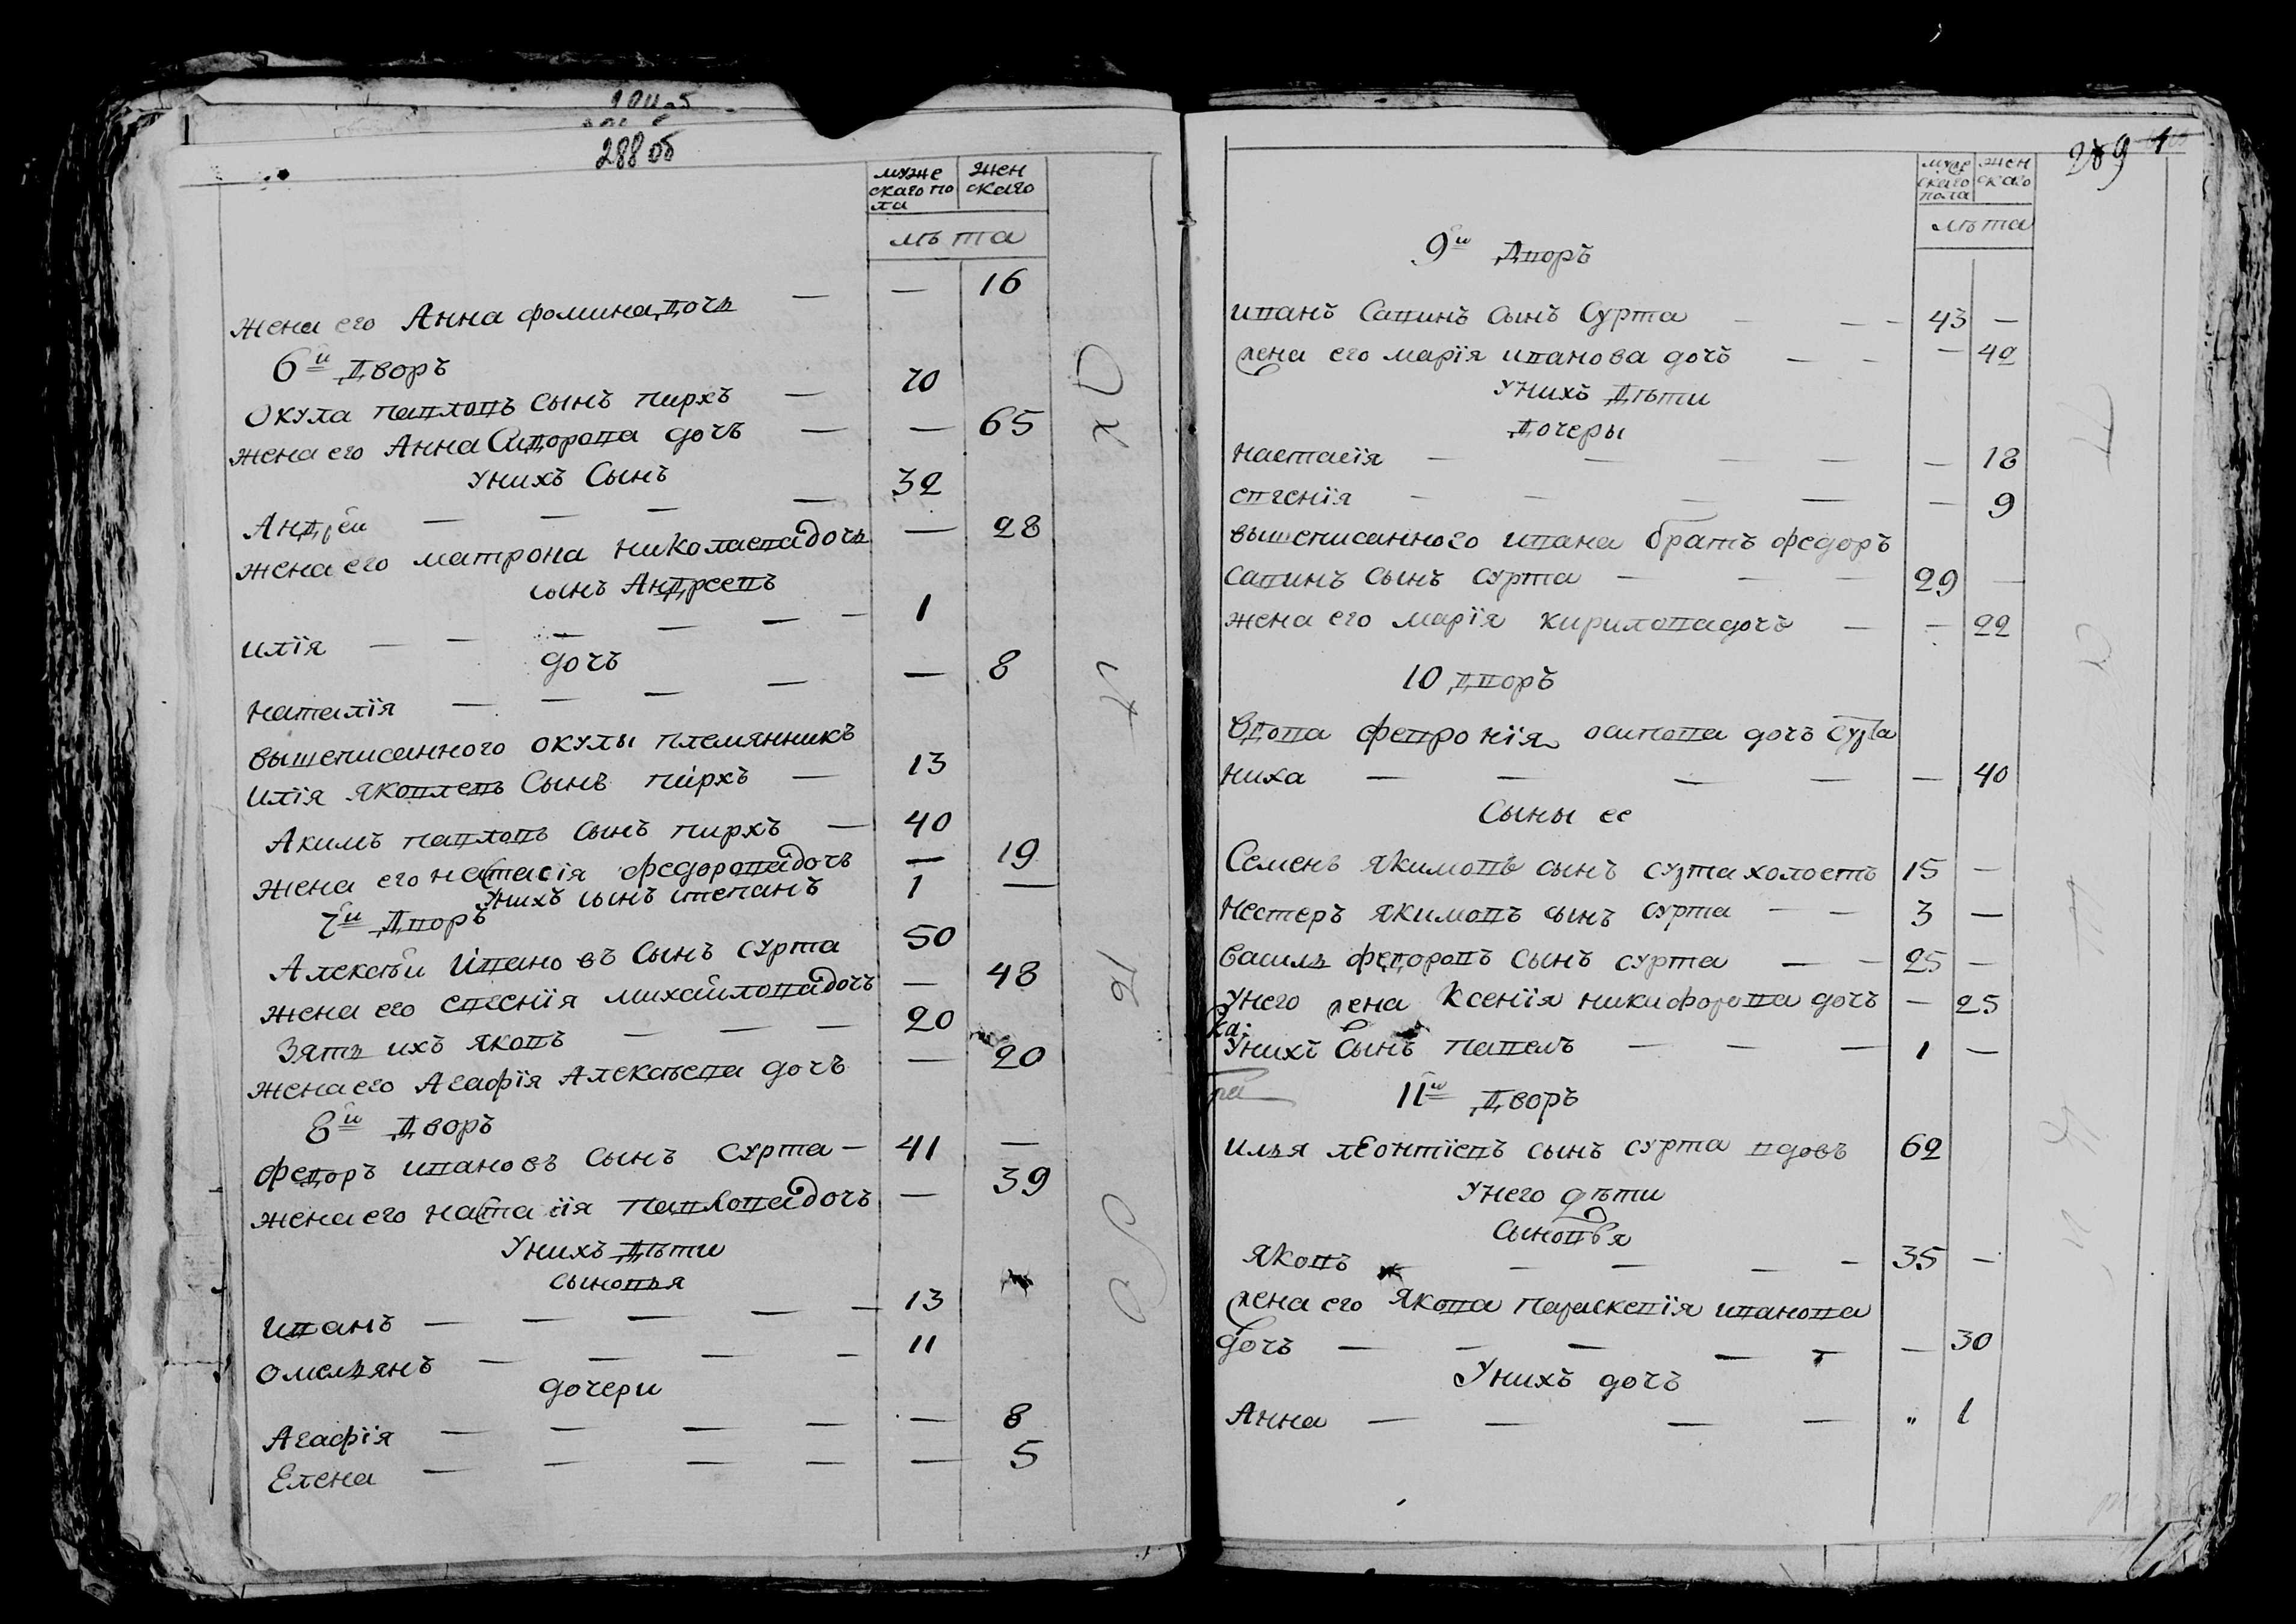 288 об
муже
скаго по
ла
жен
скаго
лѣта
жена его Анна фомина дочь — — 16
6й Дворъ
Окула павловъ сынъ пирхъ — 70
жена его Анна Сидорова дочъ — — 65
у нихъ Сынъ
Андрей — — — — 32
жена его матрона николаева дочь — 28
сынъ Андреевъ
илїя — — — — — — 1
дочъ
наталїя — — — — — 8
вышеписанного окулы племянникъ
илїя яковлевъ Сынъ пирхъ — 13
Акимъ павловъ сынъ пирхъ — 40
жена его настасїя федорова дочъ — 19
у нихъ сынъ степанъ 1 —
7й Дворъ
Алексѣй ивановъ Сынъ сурта 50
жена его евгенїя михайлова дочъ — 48
Зять ихъ яковъ — — — 20
жена его Агафїя Алексѣева дочъ — 20
8й Дворъ
федоръ ивановъ сынъ сурта — 41 —
жена его настасїя павлова дочъ — 39
у нихъ дѣти
сыновья
иванъ — — — — — 13
омельянъ — — — — 11
дочери
Агафїя — — — — — 8
Елена — — — — — 5
289
муже
скаго
пола
жен
скаго
лѣта
9й Дворъ
иванъ Савинъ сынъ Сурта — — — 43 —
жена его марїя иванова дочъ — — — 42
у нихъ дѣти
дочеры
настасїя — — — — — 18
евгенїя — — — — — 9
вышеписанного ивана братъ федоръ
савинъ сынъ сурта — — — 29 —
жена его марїя кирилова дочъ — — 22
10 дворъ
вдова февронїя осипова дочъ сурта
ниха — — — — — 40
Сыны ее
Семенъ якимовъ сынъ сурта холостъ 15 —
нестеръ якимовъ сынъ сурта — — 3 —
василь федоровъ сынъ сурта — — 25 —
у него жена Ксенїя никифорова дочъ — 25
у нихъ Сынъ павелъ — — — 1 —
11й Дворъ
илья лЕонтїевъ сынъ сурта вдовъ 62
у него дѣти
сыновья
яковъ — — — — — 35 —
жена его якова параскевїя иванова
дочъ — — — — — — 30
у нихъ дочъ
Анна — — — — " 1